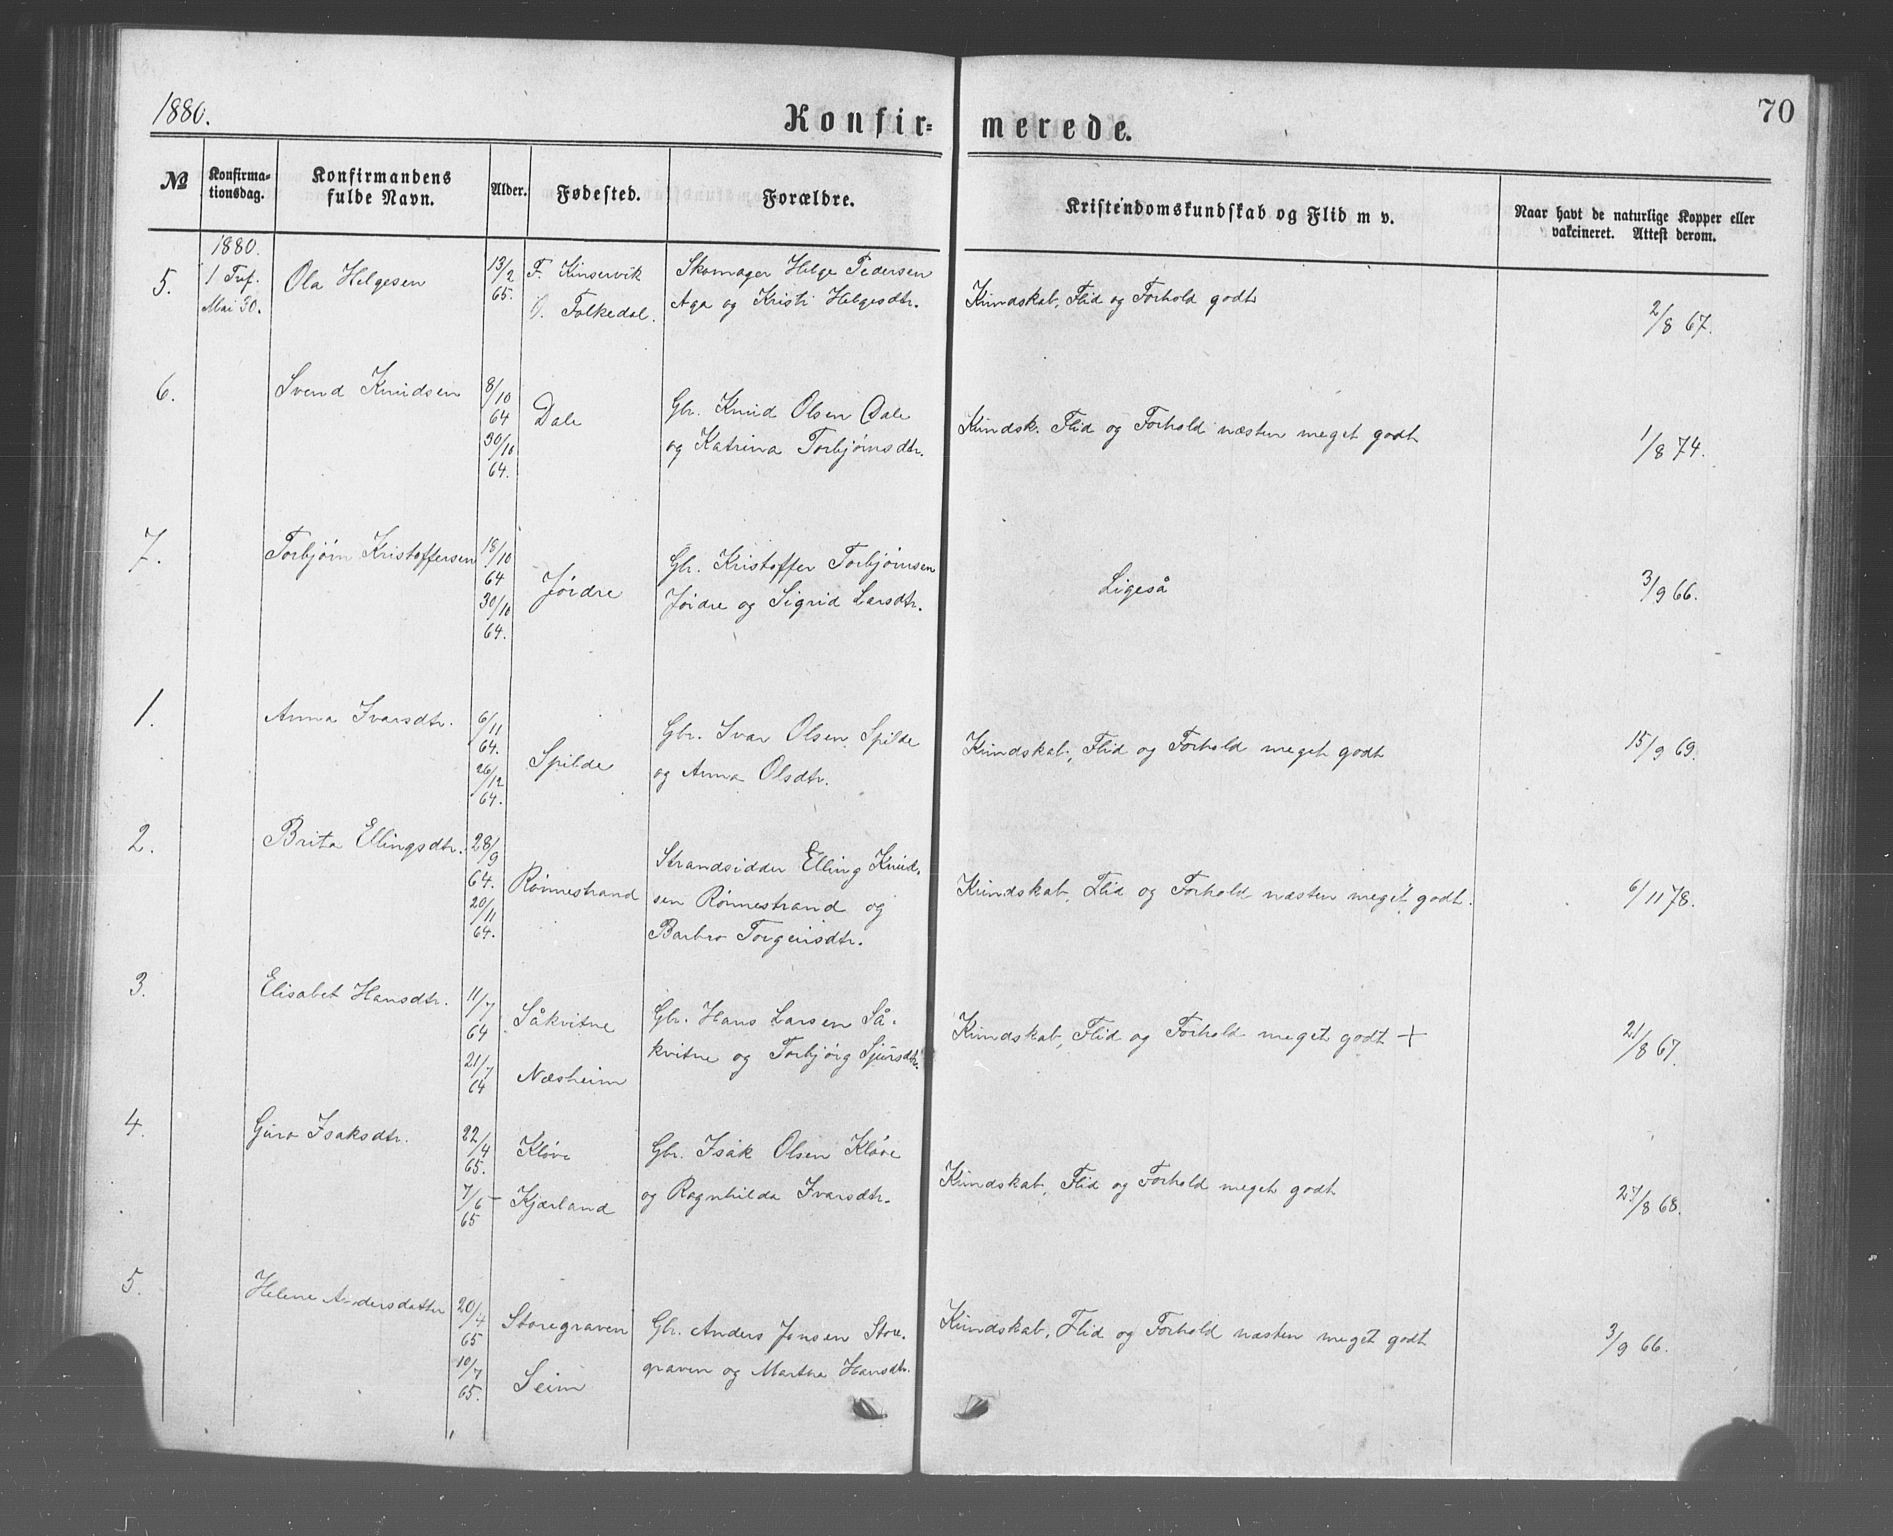 1880.
Konfir=
merede.
70
№
Konfirma=
tionsdag.
Konfirmandens
fulde Navn.
Alder.
Fødested.
Forældre.
Kristendomskundskab og Flid m v.
Naar havt de naturlige Kopper eller
vakcineret. Attest derom.
5.
1880.
1 Tref.
Mai 30.
Ola Helgesen
13/2
65.
F. Kinservik
O. Folkedal.
Skomager Helge Pedersen
Aga og Kristi Helgesdtr.
Kundskab, Flid og Forhold godt
2/8 67.
6.
Svend Knudsen
8/10
64
30/10
64.
Dale
Gbr. Knud Olsen Dale
og Katrina Torbjørnsdtr.
Kundsk. Flid og Forhold næsten meget godt
1/8 74.
7.
Torbjørn Kristoffersen
18/10
64
30/10
64.
Jøidre
Gbr. Kristoffer Torbjørnsen
Jøidre og Sigrid Larsdtr.
Ligeså
3/9 66.
1.
Anna Ivarsdtr.
6/11
64.
26/12
64.
Spilde
Gbr. Ivar Olsen Spilde
og Anna Olsdtr.
Kundskab, Flid og Forhold meget godt
15/9 69.
2.
Brita Ellingsdtr.
28/9
64.
20/11
64.
Rønnestrand
Strandsidder Elling Knud-
sen Rønnestrand og
Barbro Torgeirsdtr.
Kundskab, Flid og Forhold næsten meget godt.
6/11 78.
3.
Elisabet Hansdtr.
11/7
64
21/7
64
Såkvitne
Næsheim
Gbr. Hans Larsen Så-
kvitne og Torbjørg Sjursdtr.
Kundskab, Flid og Forhold meget godt +
21/8 67.
4.
Guro Isaksdtr.
22/4
65.
7/5
65
Kløve
Kjærland
Gbr. Isak Olsen Kløve
og Ragnhilda Ivarsdtr.
Kundskab, Flid og Forhold meget godt
27/8 68.
5.
Helene Andersdatter
20/4
65
10/7
65.
Storegraven
Seim
Gbr. Anders Jonsen Store-
graven og Martha Hansdtr.
Kundskab, Flid og Forhold næsten meget godt
3/9 66.